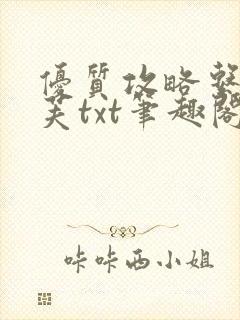 優質攻略
芙txt筆趣閣
咔咔西小姐